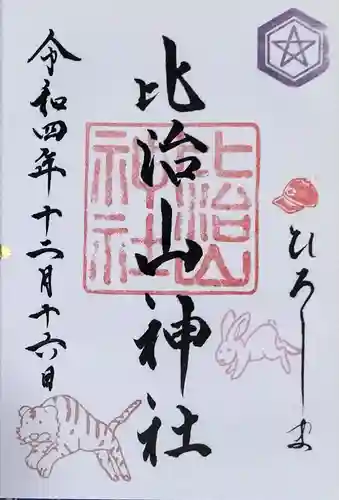 ひろしま
比治山神社
比治山
神社
令和四年十二月十六日